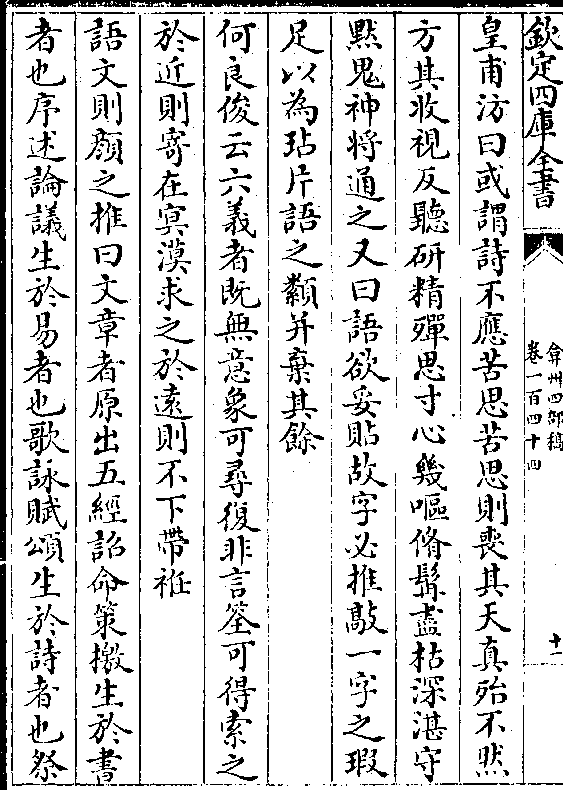 欽定四庫全書
弇州四部稿
卷一百四十四
十一
皇甫汸曰或謂詩不應苦思苦思則喪其天真殆不然
方其收視反聽研精殫思寸心幾嘔脩髯盡枯深湛守
黙鬼神将通之又曰語欲妥貼故字必推敲一字之瑕
足以為玷片語之纇并棄其餘
何良俊云六義者既無意象可尋復非言筌可得索之
於近則寄在冥漠求之於逺則不下帶袵
語文則顔之推曰文章者原出五經詔命策檄生於書
者也序述論議生於易者也歌詠賦頌生於詩者也祭